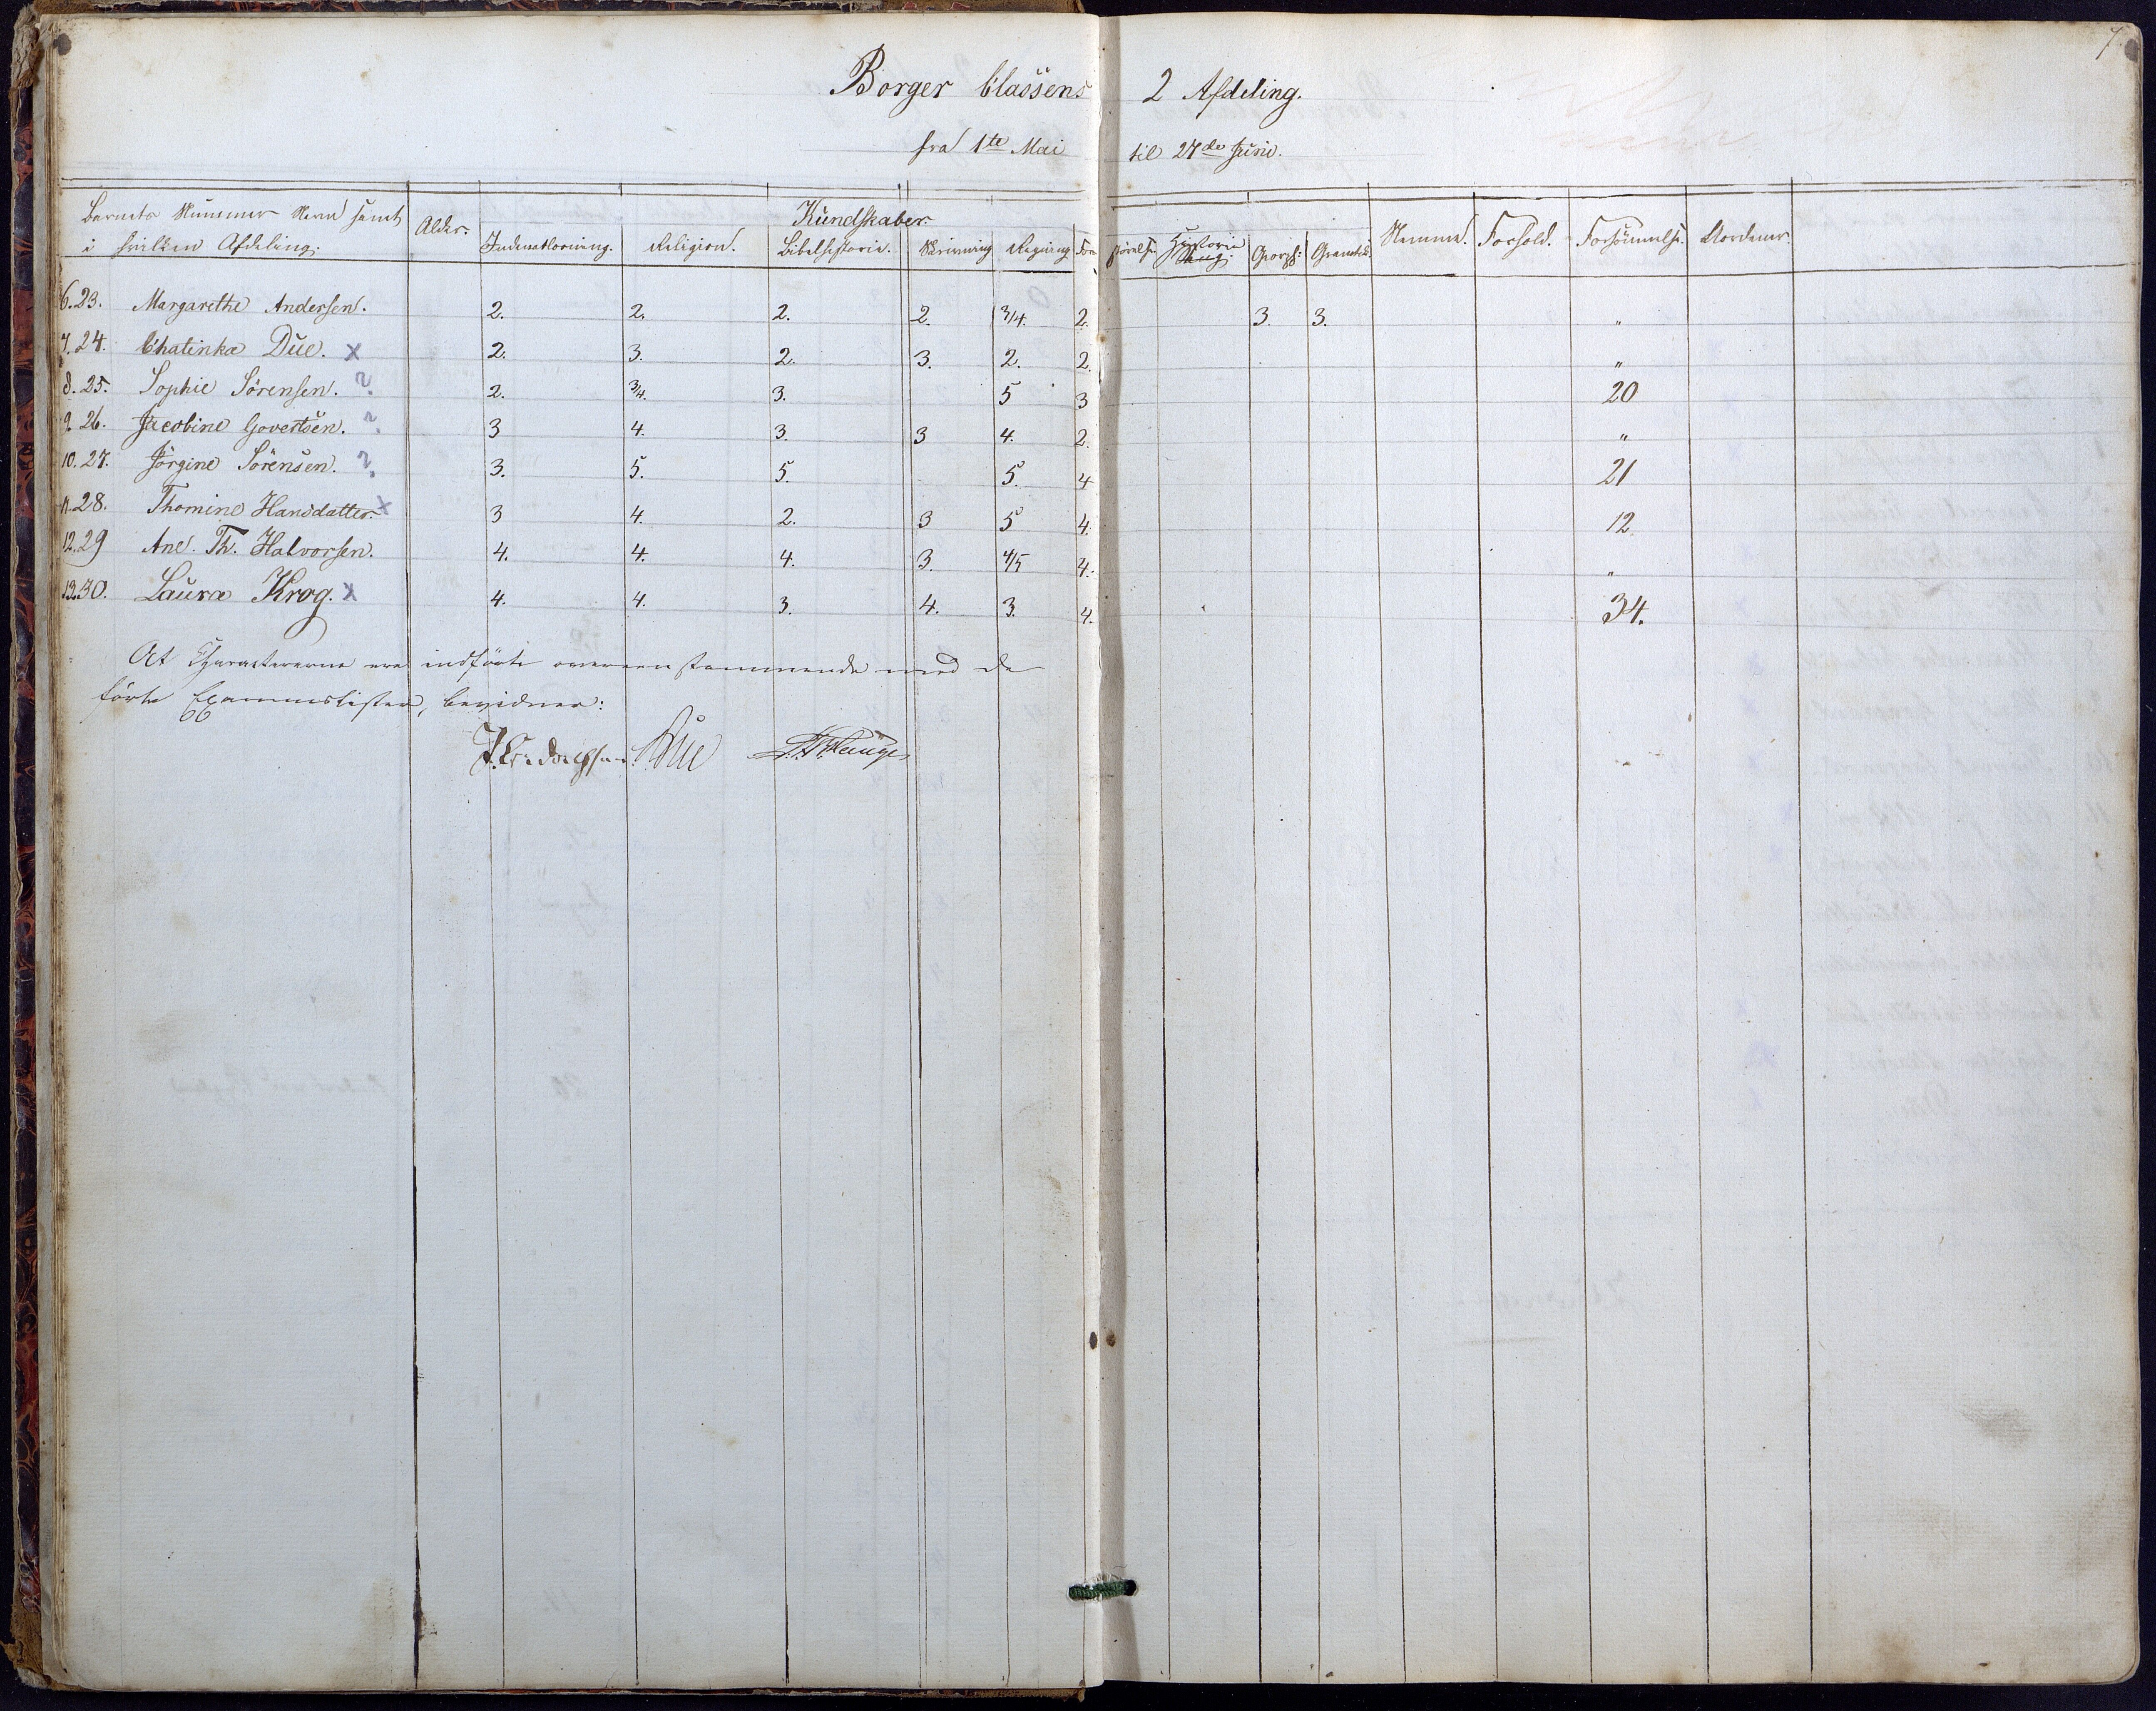 7
Borger Classens 2 Afdeling.
fra 1te Mai til 27de Juni.
Barnets Nummer Navn samt i hvilken Afdeling. Alder. Kundskaber. Nemme. Forhold. Forsømmelse.
Indenadlæsning. Religion. Bibelhistorie. Skrivning Regning Historie Sang. Geogph: Gramatik.
6. 23. Margarethe Andersen. 2. 2. 2. 2. 3/4. 2. 3. 3. "
7. 24. Chatinka Due. x 2. 3. 2. 3. 2. 2. "
8. 25. Sophie Sørensen. ? 2. 3/4. 3. 5 3 20
9. 26. Jacobine Govertsen. ? 3 4. 3. 3 4. 2. "
10. 27. Jørgine Sørensen. ? 3. 5. 5. 5. 4 21
11. 28. Thomine Hansdatter. x 3 4. 2. 3 5 4. 12.
12. 29 Ane. Th. Halvorsen. 4. 4. 4. 3. 4/5 4. "
13. 30. Laura Krog. x 4. 4. 3. 4. 3. 4. 34.
At Charactererne ere indførte overeensstemmende med de
førte Examenslister, bevidner:
Due